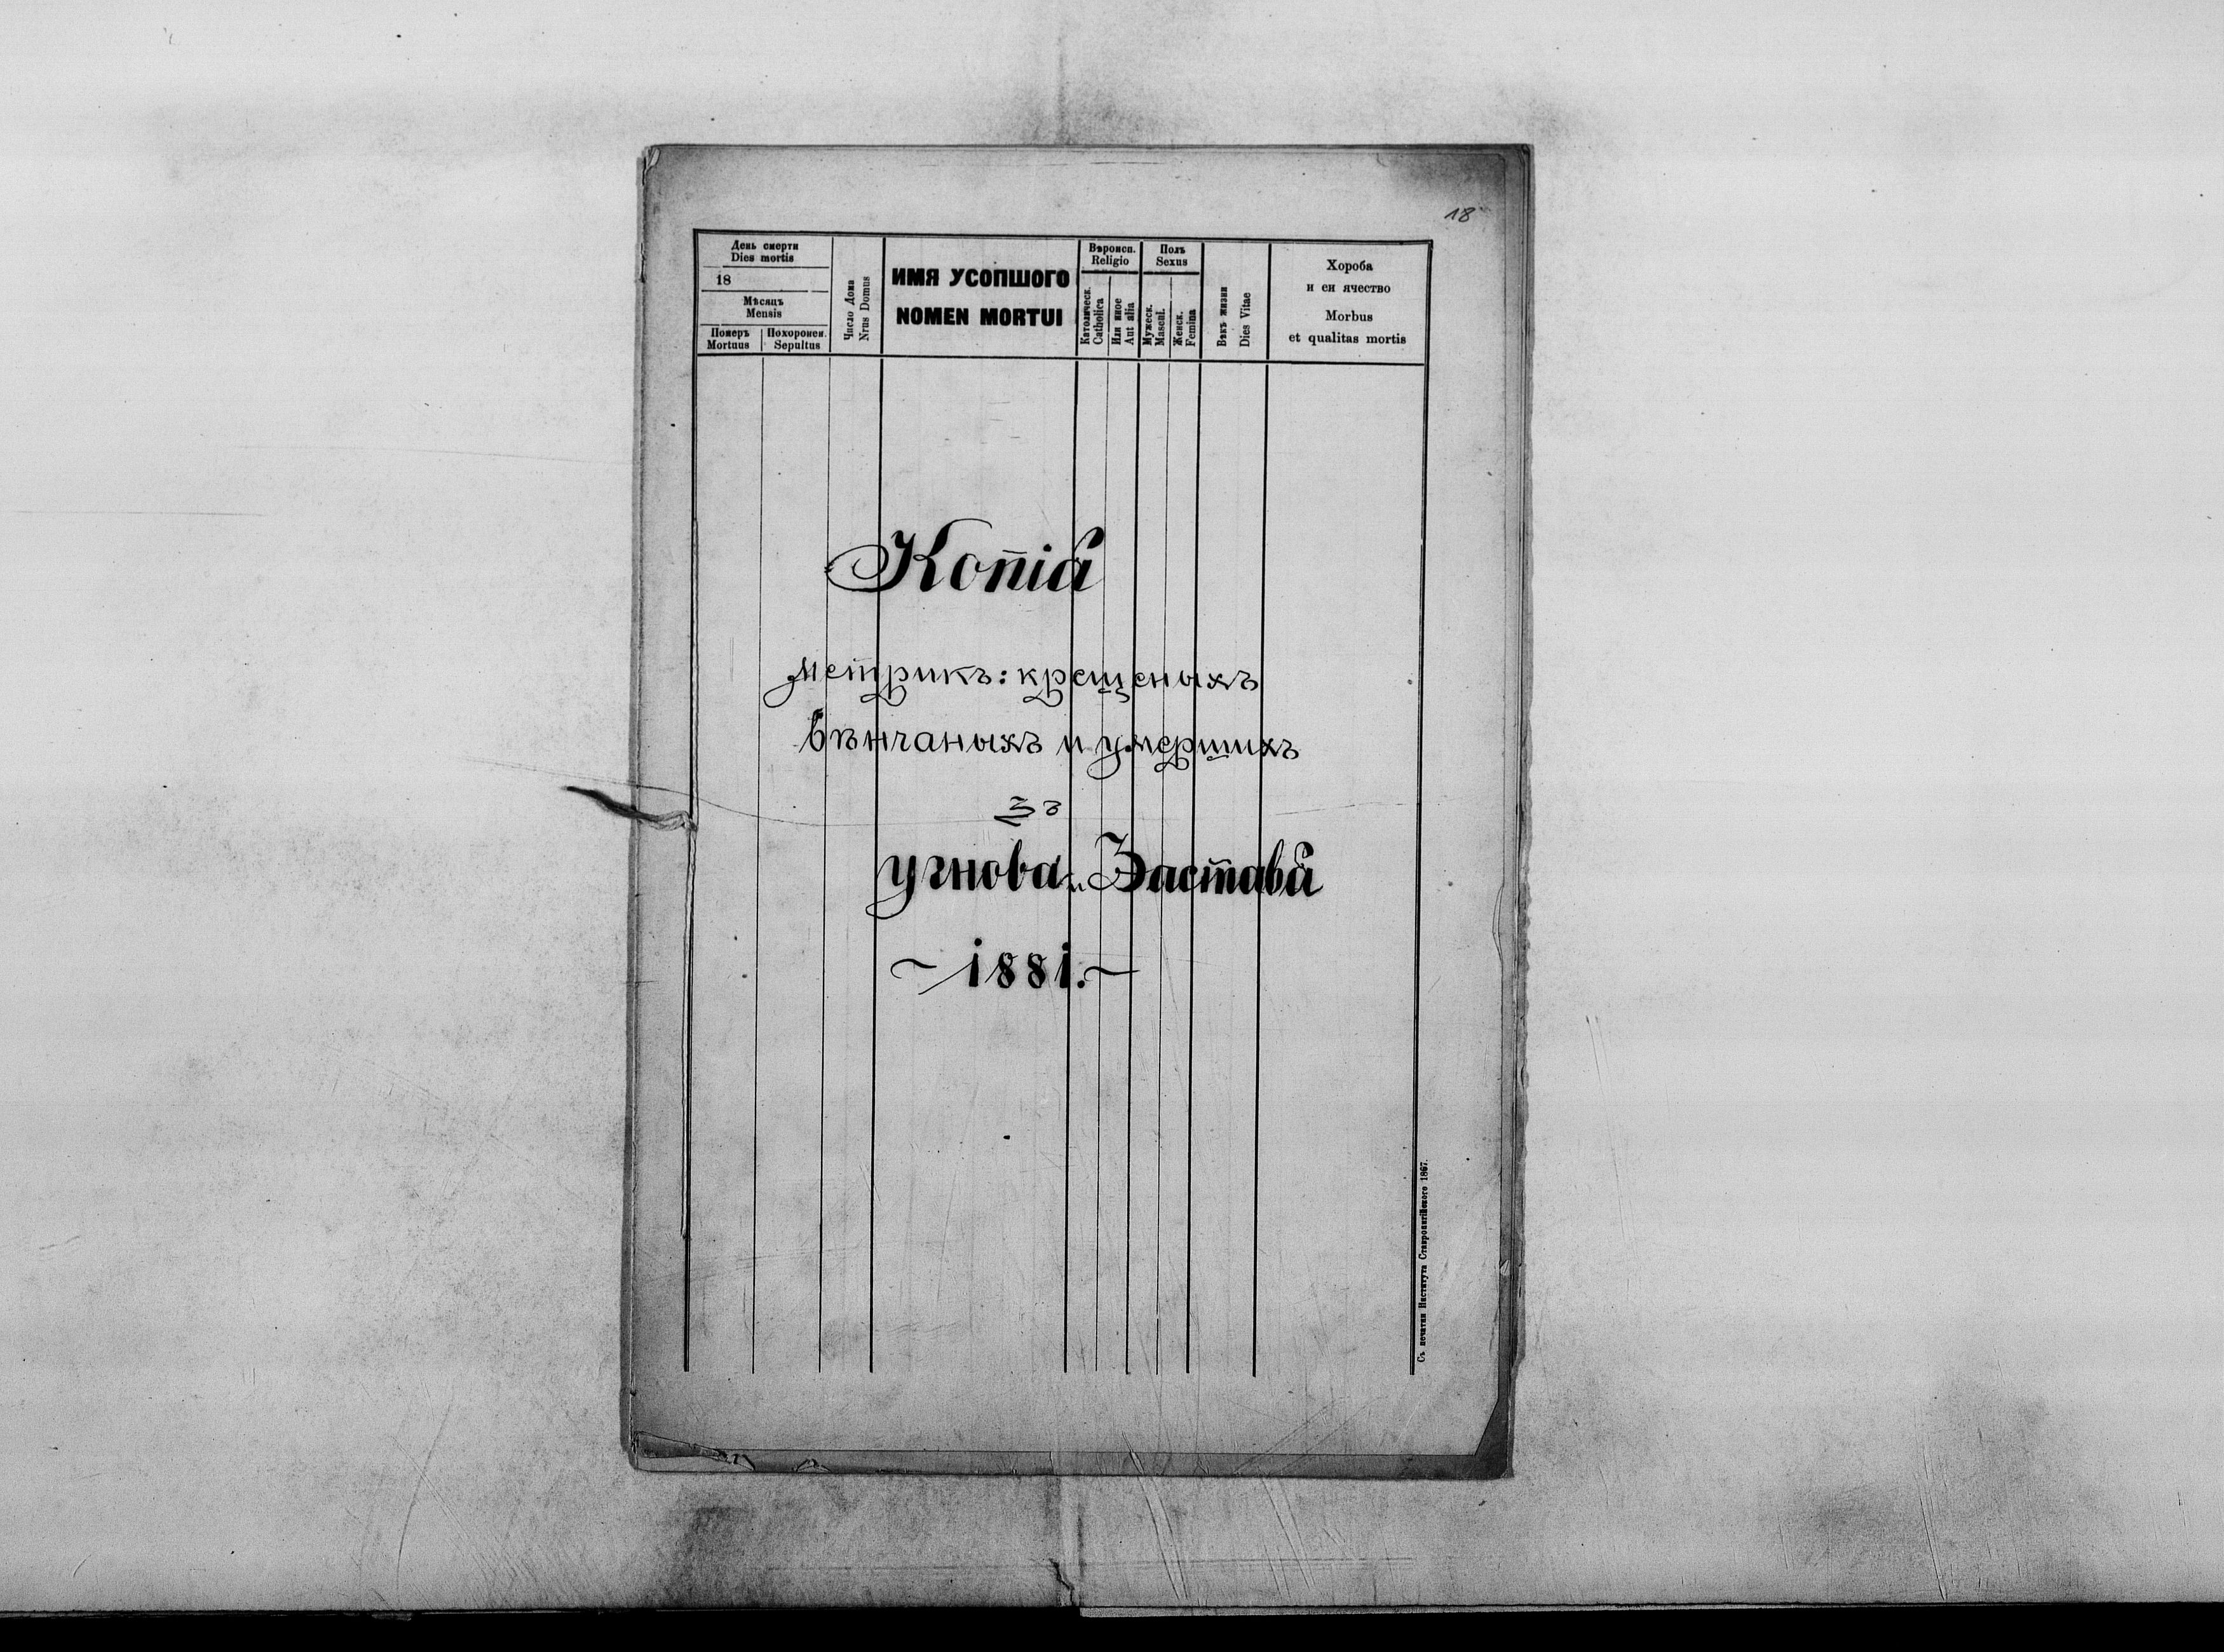 18
День смерти
Dies mortis
18
Мѣсяцъ
Mensis
Померъ
Mortuus
Похоронен.
Sepultus
Число Дома
Nrus Domus
ИМЯ УСОПШОГО
NOMEN MORTUI
Вѣроисп.
Religio
Католическ.
Catholica
Или иное
Aut alia
Полъ
Sexus
Мужеск.
Mascul.
Женск.
Femina
Вѣкъ жизни
Dies Vitae
Хороба
и еи ячество
Morbus
et qualitas mortis
Копіѣ
метрикъ: крещеныхъ
вѣнчаныхъ и умершихъ
Зъ
Угнова и Заставѣ
~ 1881. ~
Съ печатни Института Ставропигійского 1867.